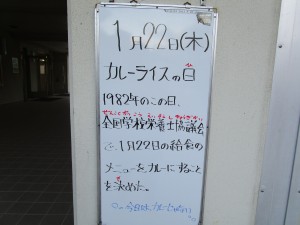 1月22日(木)
カレーライスの日
1982年のこの日、
全国学校栄養士協議会
が、1月22日の給食の
メニューをカレーにすること
を決めた。